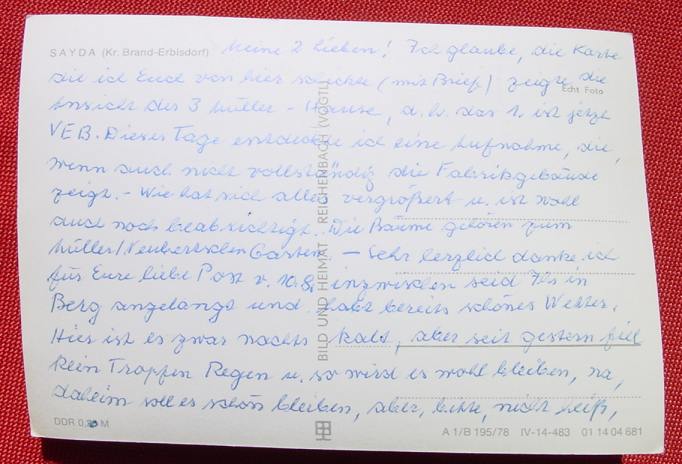 SAYDA (Kr. Brand-Erbisdorf) Meine 2 Lieben! Ich glaube, die Karte
die ich Euch von hier schickte (mit Brief) zeigte die
Echt Foto
Ansicht des 3 Müller-Hause, d.h. das 1. ist jetzt
VEB. Dieser Tage entdeckte ich eine Aufnahme, die,
wenn auch nicht vollständig die Fabrikgebäude
zeigt. - Wie hat sich alles vergrößert u. ist wohl
auch noch beabsichtigt. Die Bäume gehören zum
Müller/Neubertschen Garten. - Sehr herzlich danke ich
für Eure liebe Post v. 10.8., inzwischen seid Ihr in
Berg angelangt und habt bereits schönes Wetter.
Hier ist es zwar nachts kalt, aber seit gestern fiel
kein Tropfen Regen u. so wird es wohl bleiben, na,
daheim soll es schön bleiben, aber, bitte, nicht heiß,
BILD UND HEIMAT REICHENBACH (VOGTL)
DDR 0, M
A 1/B 195/78 IV-14-483 01 14 04 681